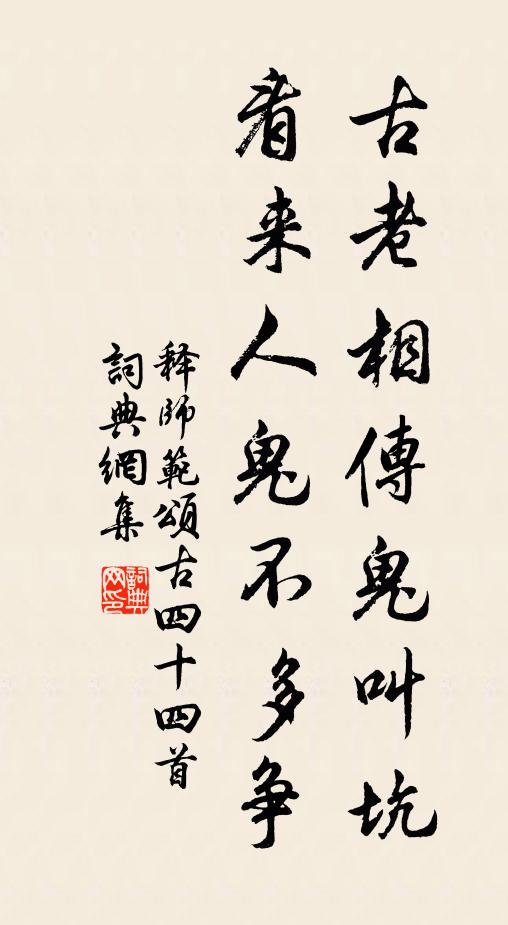 古老相傳鬼叫坑
看来人鬼不多争
释師範頌古四十四首
詞典網集
詞典网印